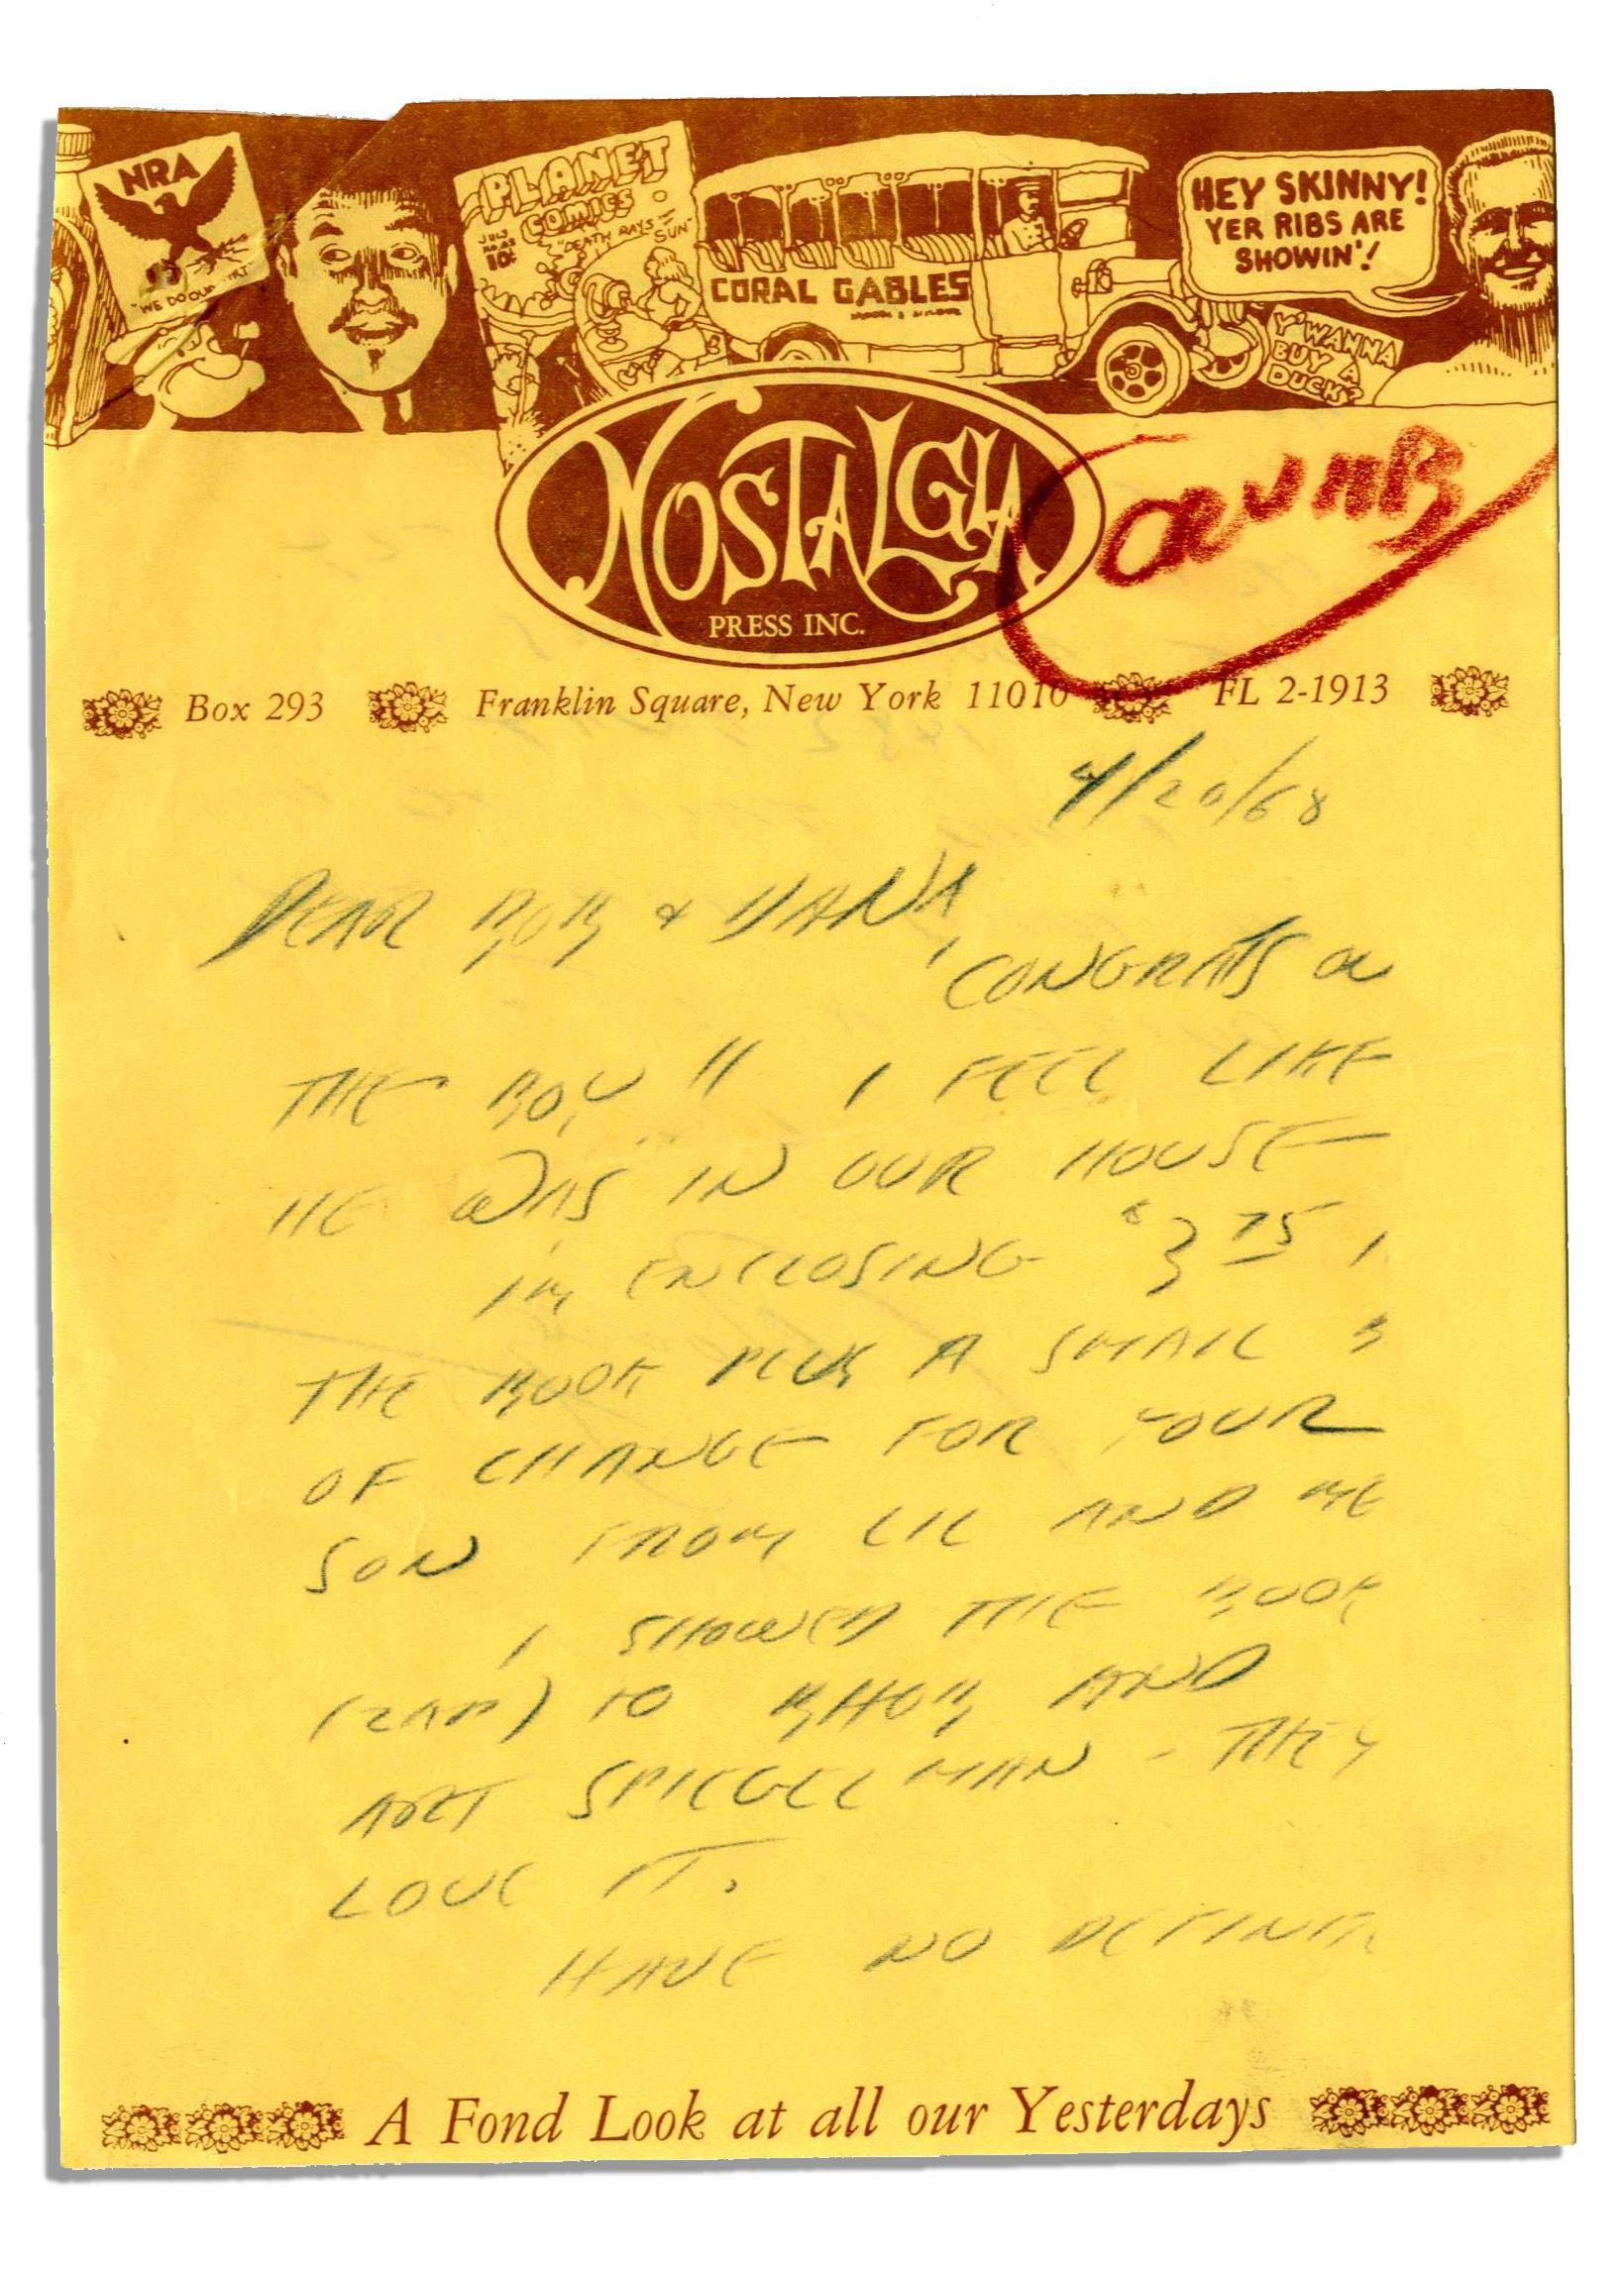 NRA
"WE DO OUR PART"
PLANET
COMICS
JULY
10¢
"DEATH RAYS
SUN"
CORAL GABLES
HEY SKINNY!
YER RIBS ARE
SHOWIN'!
Y'WANNA
BUY A
DUCK?
NOSTALGIA
PRESS INC.
CRUMB
Box 293 Franklin Square, New York 11010 FL 2-1913
4/20/68
DEAR BOB & DANA,
CONGRATS ON
THE BOY!! I FEEL LIKE
HE WAS IN OUR HOUSE
I'M ENCLOSING $3 75
THE BOOK PLUS A SMALL
OF CHANGE FOR YOUR
SON FROM LIL AND ME
I SHOWED THE BOOK
(ZAP) TO BHOB AND
ART SPIEGELMAN - THEY
LOVE IT.
HAVE NO
A Fond Look at all our Yesterdays